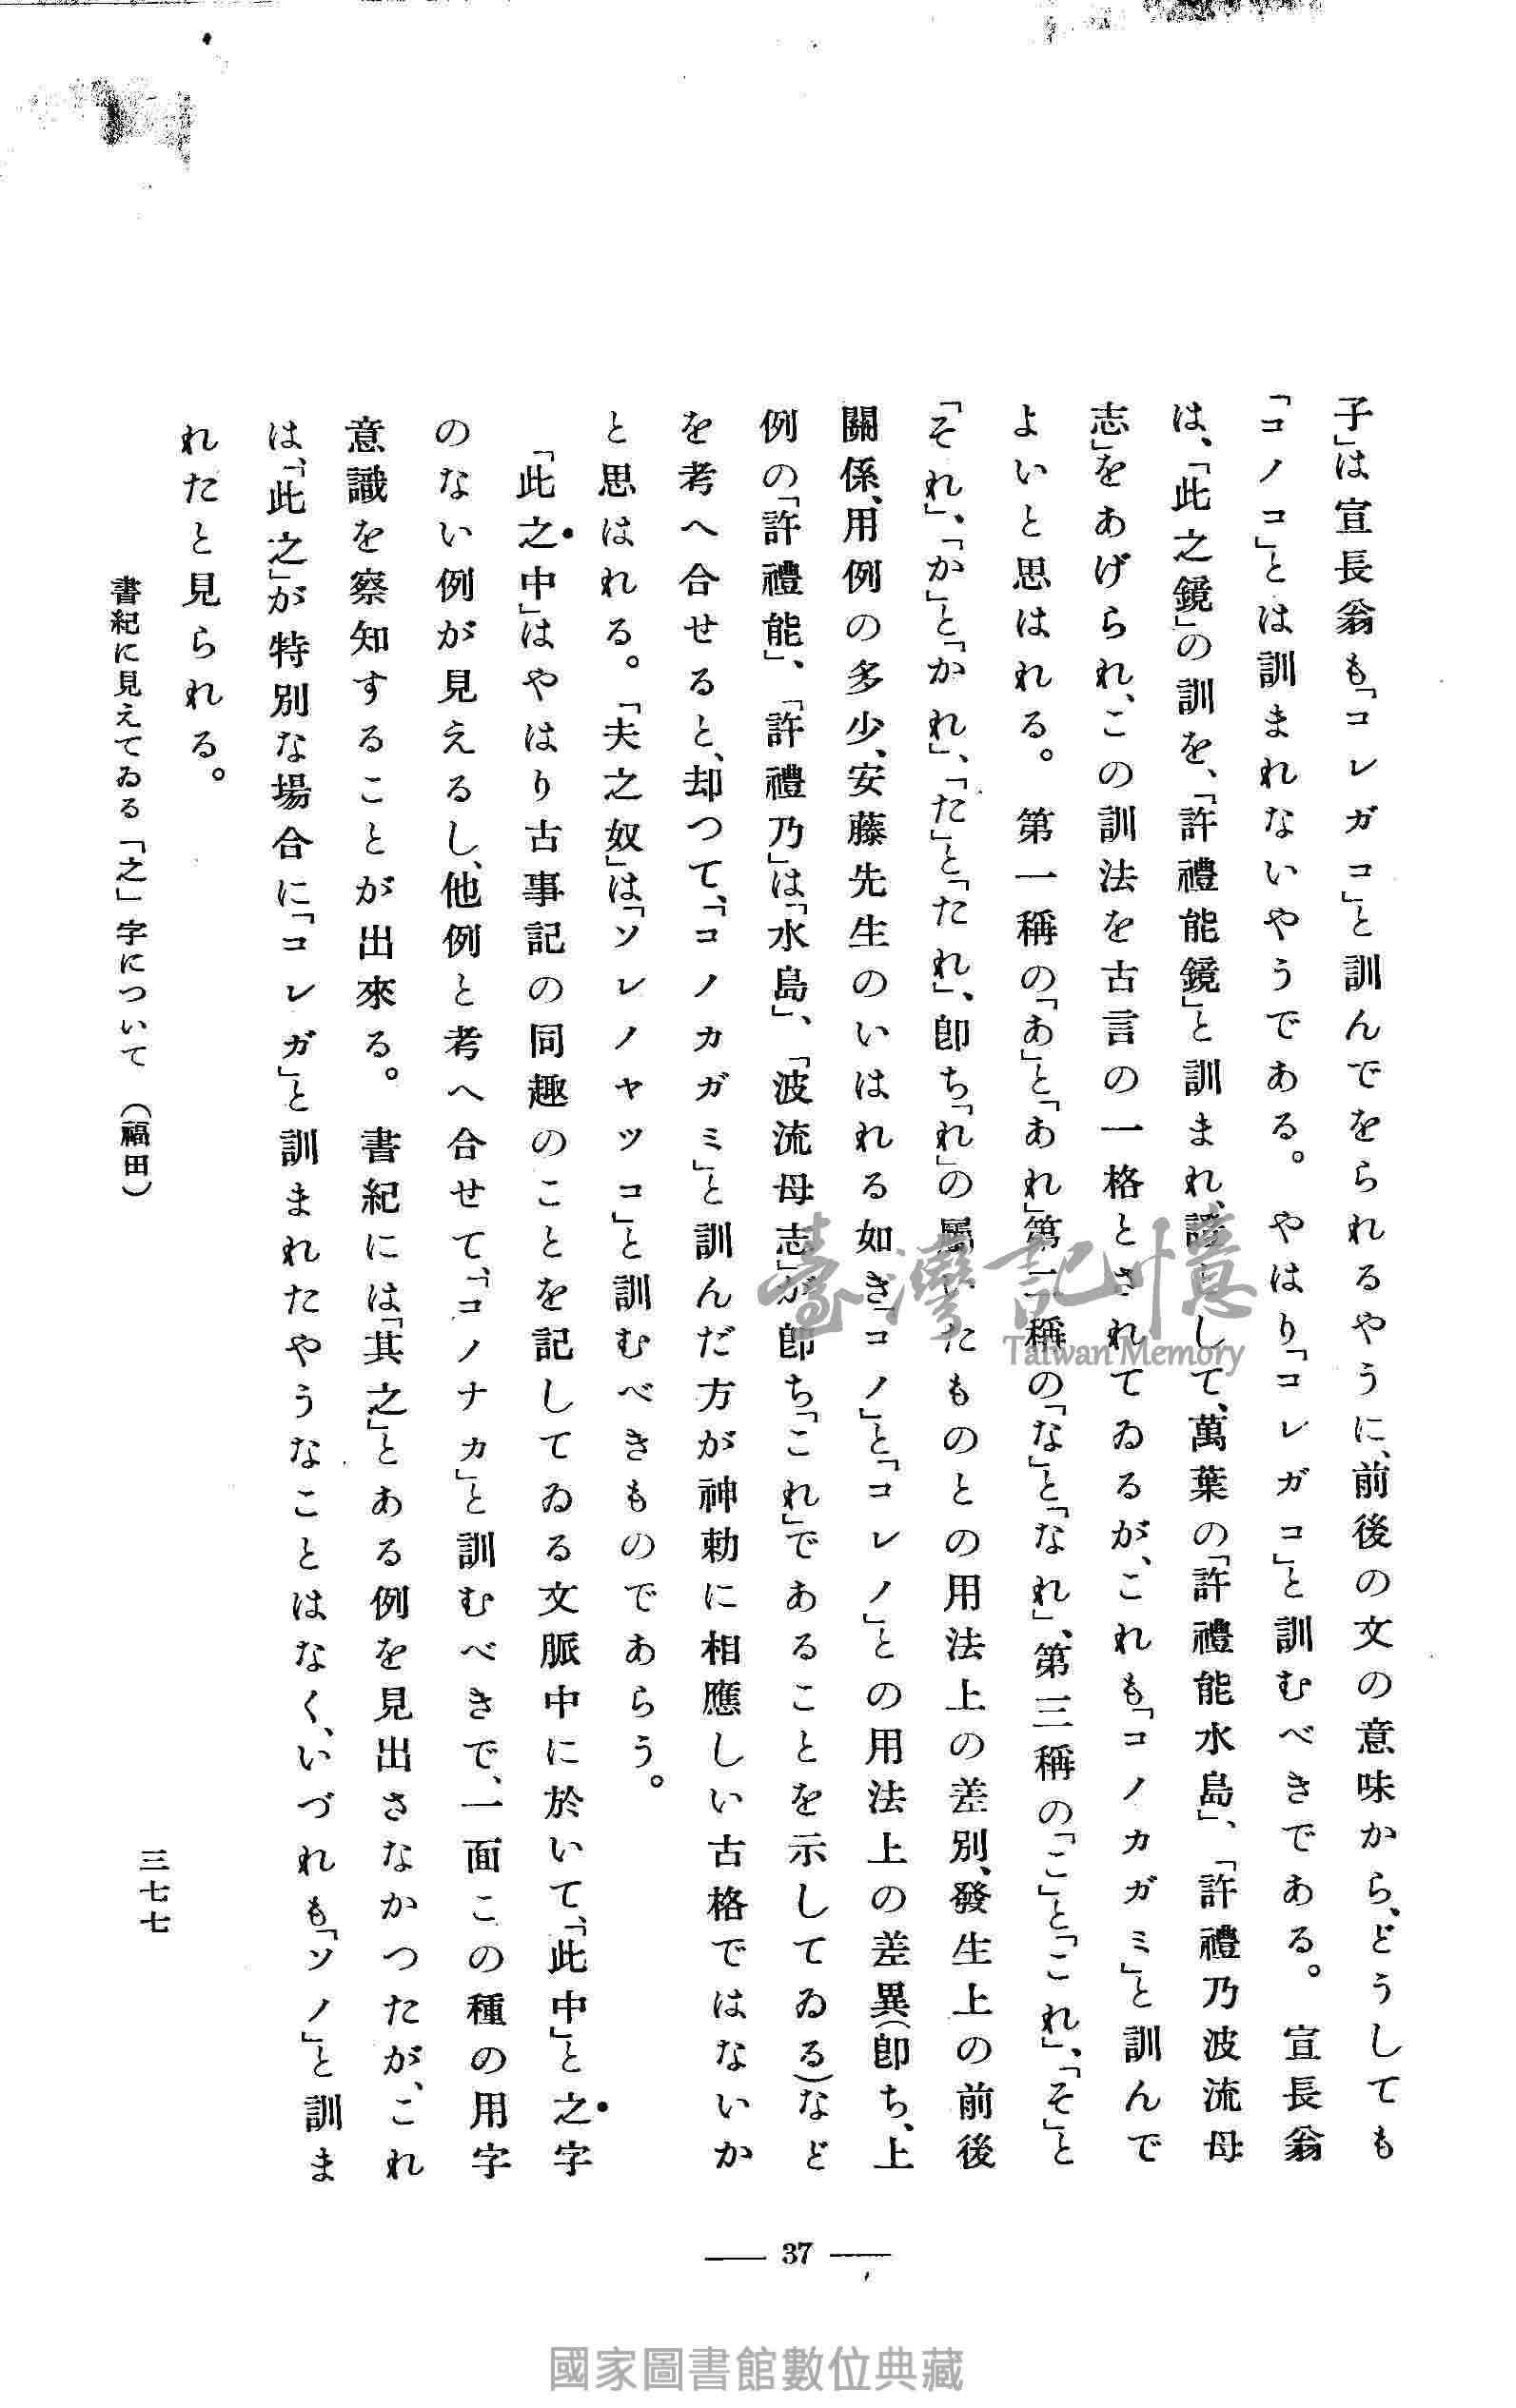 子」は宣長翁も「コレガコ」と訓んでをられるやうに、前後の文の意味から、どうしても
「コノコ」とは訓まれないやうである。やはり「コレガコ」と訓むべきである。宣長翁
は、「此之鏡」の訓を、「許禮能鏡」と訓まれ、して、萬葉の「許禮能水島」、「許禮乃波流母
志」をあげられ、この訓法を古言の一格とされてゐるが、これも「コノカガミ」と訓んで
よいと思はれる。第一稱の「あ」と「あれ」第二稱の「な」と「なれ」、第三稱の「こ」と「これ」、「そ」と
「それ」、「か」と「かれ」、「た」と「たれ」、卽ち「れ」の屬いたものとの用法上の差別、發生上の前後
關係、用例の多少、安藤先生のいはれる如き「コノ」と「コレノ」との用法上の差異（卽ち、上
例の「許禮能」、「許禮乃」は「水島」、「波流母志」が卽ち「これ」であることを示してゐる）など
を考へ合せると、却つて、「コノカガミ」と訓んだ方が神勅に相應しい古格ではないか
と思はれる。「夫之奴」は「ソレノヤツコ」と訓むべきものであらう。
「此之中」はやはり古事記の同趣のことを記してゐる文脈中に於いて、「此中」と之字
のない例が見えるし、他例と考へ合せて、「コノナカ」と訓むべきで、一面この種の用字
意識を察知することが出來る。書紀には「其之」とある例を見出さなかつたが、これ
は、「此之」が特別な場合に「コレガ」と訓まれたやうなことはなく、いづれも「ソノ」と訓ま
れたと見られる。
書紀に見えてゐる「之」字について（福田）
三七七
37
臺灣記憶
Taiwan Memory
國家圖書館數位典藏